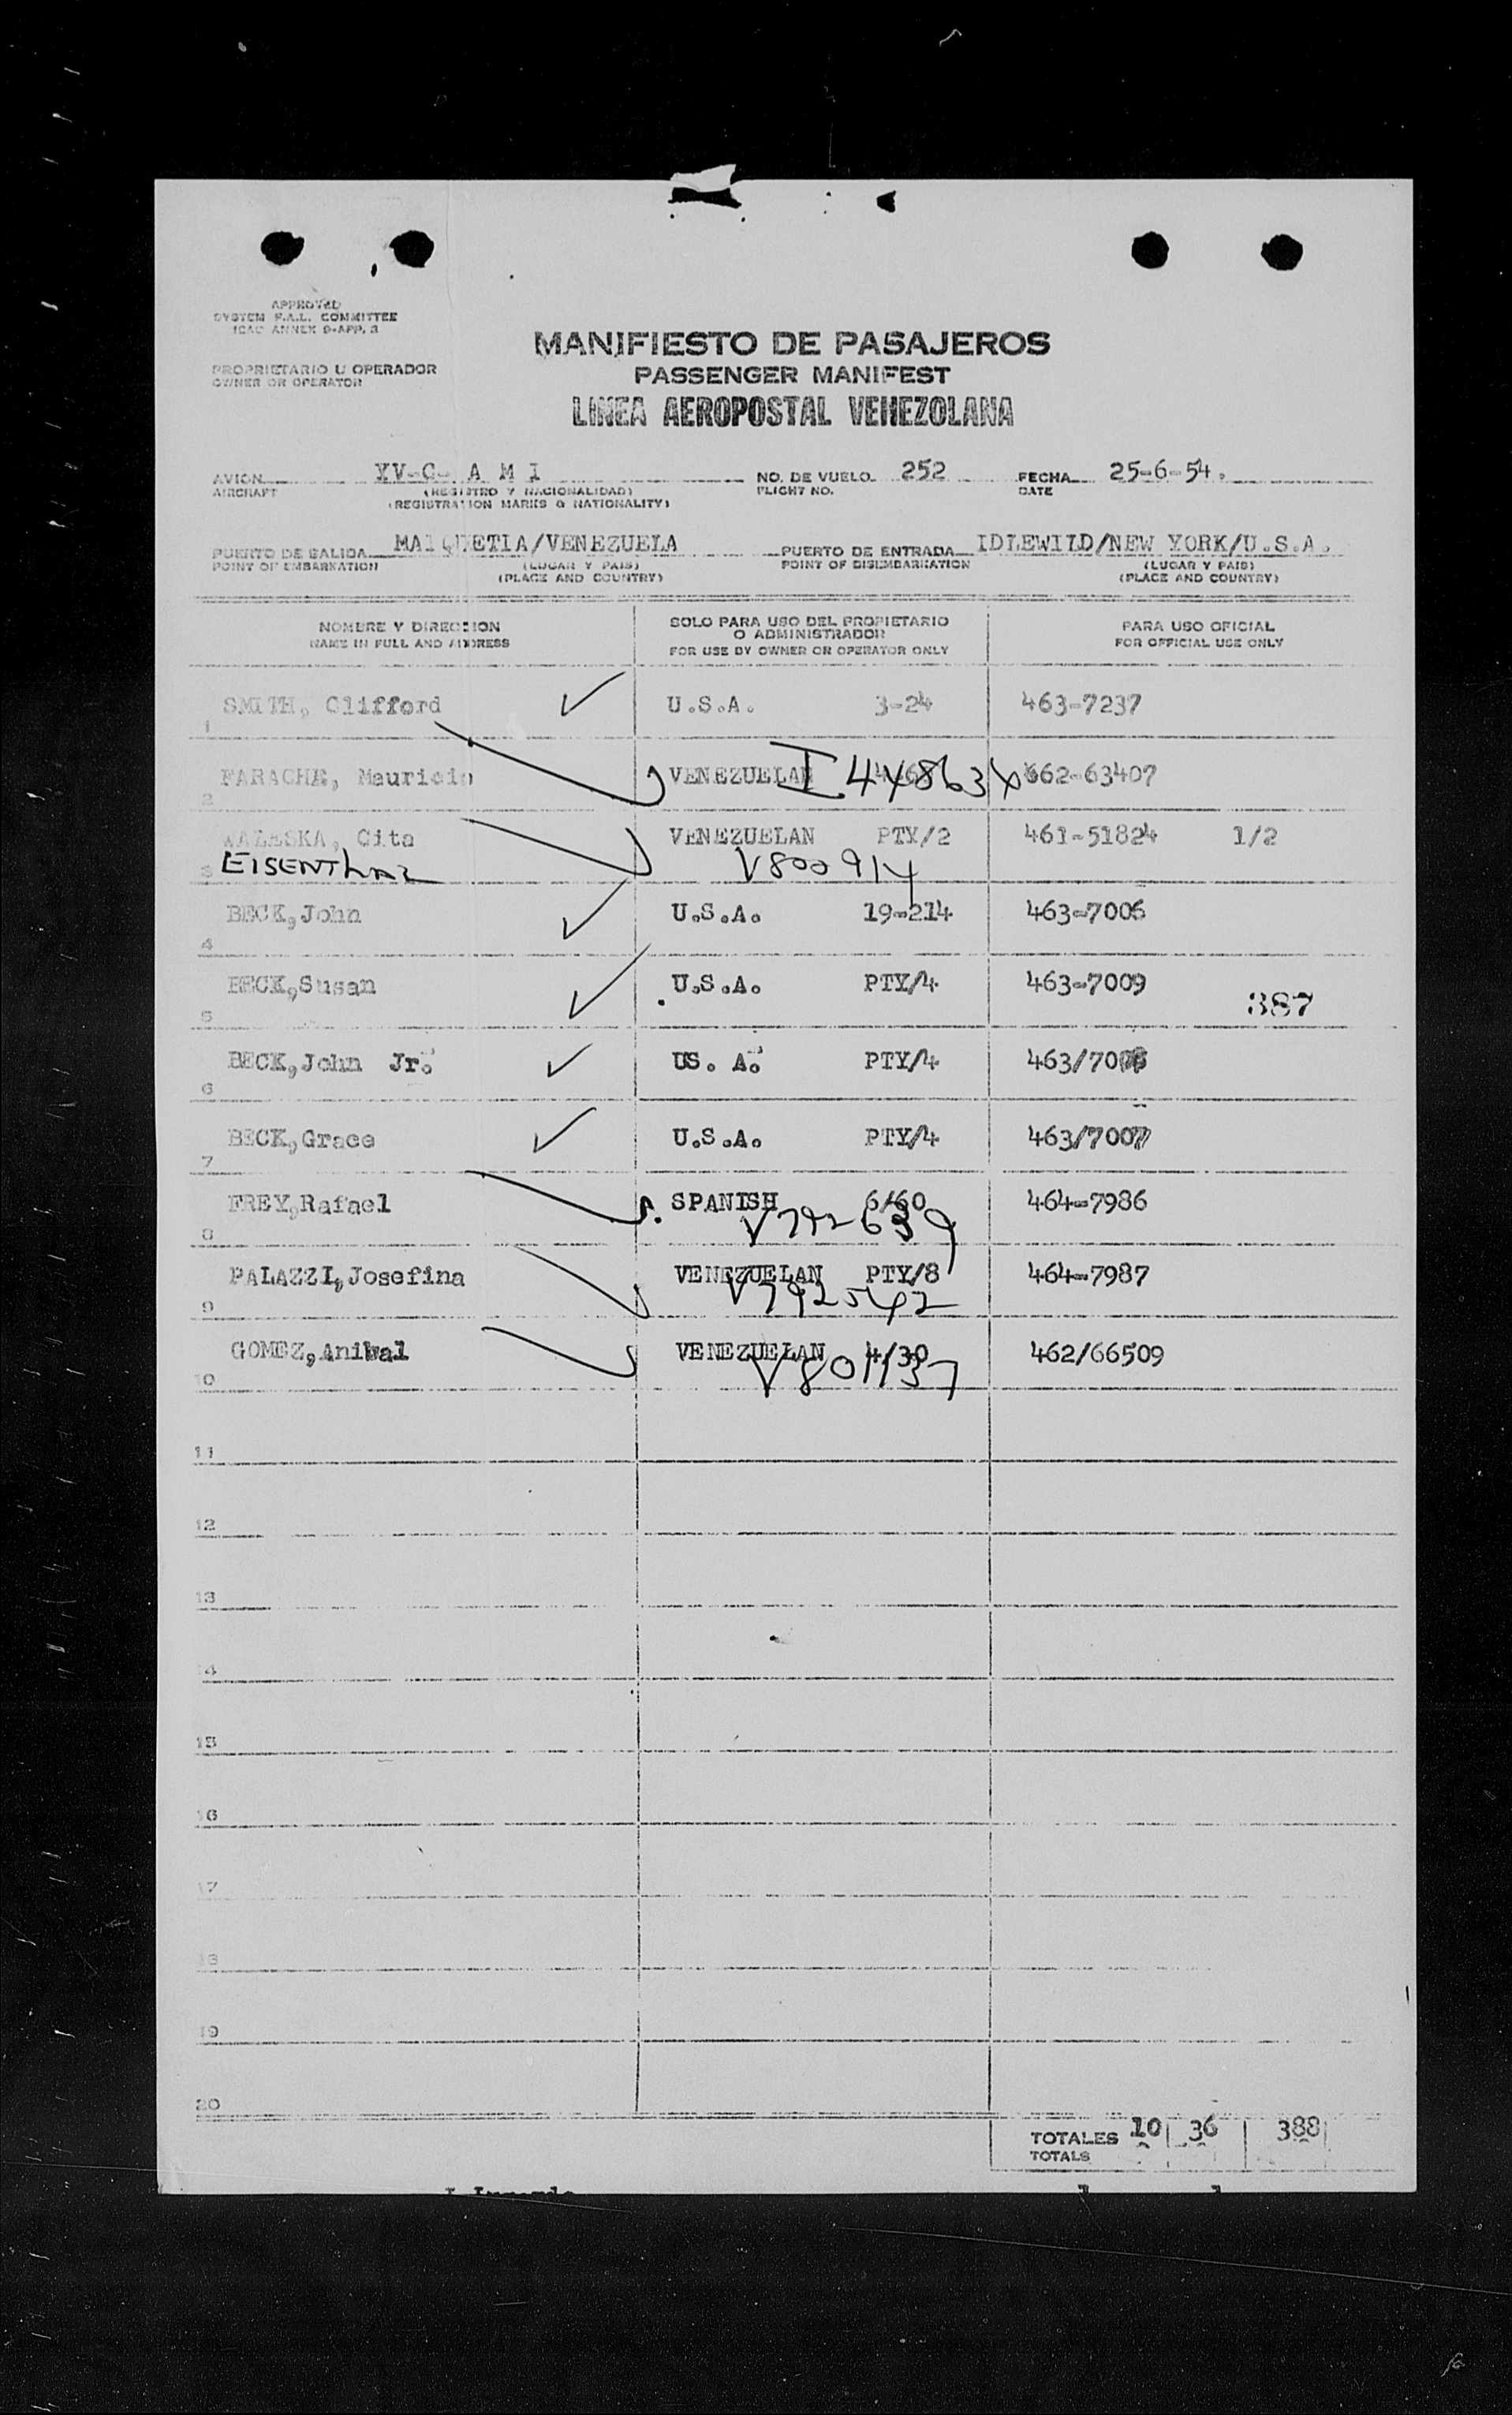 APPROVED
SYSTEM F.A.L. COMMITTEE
ICAO ANNEX 9-APP. 3
MANIFIESTO DE PASAJEROS
PROPRIETARIO U OPERADOR
OWNER OR OPERATOR
PASSENGER MANIFEST
LINEA AEROPOSTAL VENEZOLANA
AVION XV-C- A M I NO. DE VUELO 252 FECHA 25-6-54.
AIRCRAFT (REGISTRO Y NACIONALIDAD) FLIGHT NO. DATE
(REGISTRATION MARKS & NATIONALITY)
PUERTO DE SALIDA MAIQUETIA/VENEZUELA PUERTO DE ENTRADA IDLEWILD/NEW YORK/U.S.A.
POINT OF EMBARKATION (LUGAR Y PAIS) POINT OF DISEMBARKATION (LUGAR Y PAIS)
(PLACE AND COUNTRY) (PLACE AND COUNTRY)
NOMBRE Y DIRECCION SOLO PARA USO DEL PROPIETARIO O ADMINISTRADOR PARA USO OFICIAL
NAME IN FULL AND ADDRESS FOR USE BY OWNER OR OPERATOR ONLY FOR OFFICIAL USE ONLY
1 SMITH, Clifford U.S.A. 3-24 463-7237
2 FARACHE, Mauricio VENEZUELAN I 448634 662-63407
3 WALESKA, Cita VENEZUELAN PTY/2 461-51824 1/2
EISENTHAL V800914
4 BECK,John U.S.A. 19-214 463-7006
5 BECK,Susan U.S.A. PTY/4 463-7009
387
6 BECK,John Jr. US. A. PTY/4
7 BECK,Grace U.S.A. PTY/4 463/7007
8 FREY,Rafael SPANISH 6/60 464-7986
V792639
9 PALAZZI,Josefina VENEZUELAN PTY/8 464-7987
V792542
10 GOMEZ,Anibal VENEZUELAN 4/30 462/66509
V801137
11
12
13
14
15
16
17
18
19
20
TOTALES 10 36 388
TOTALS